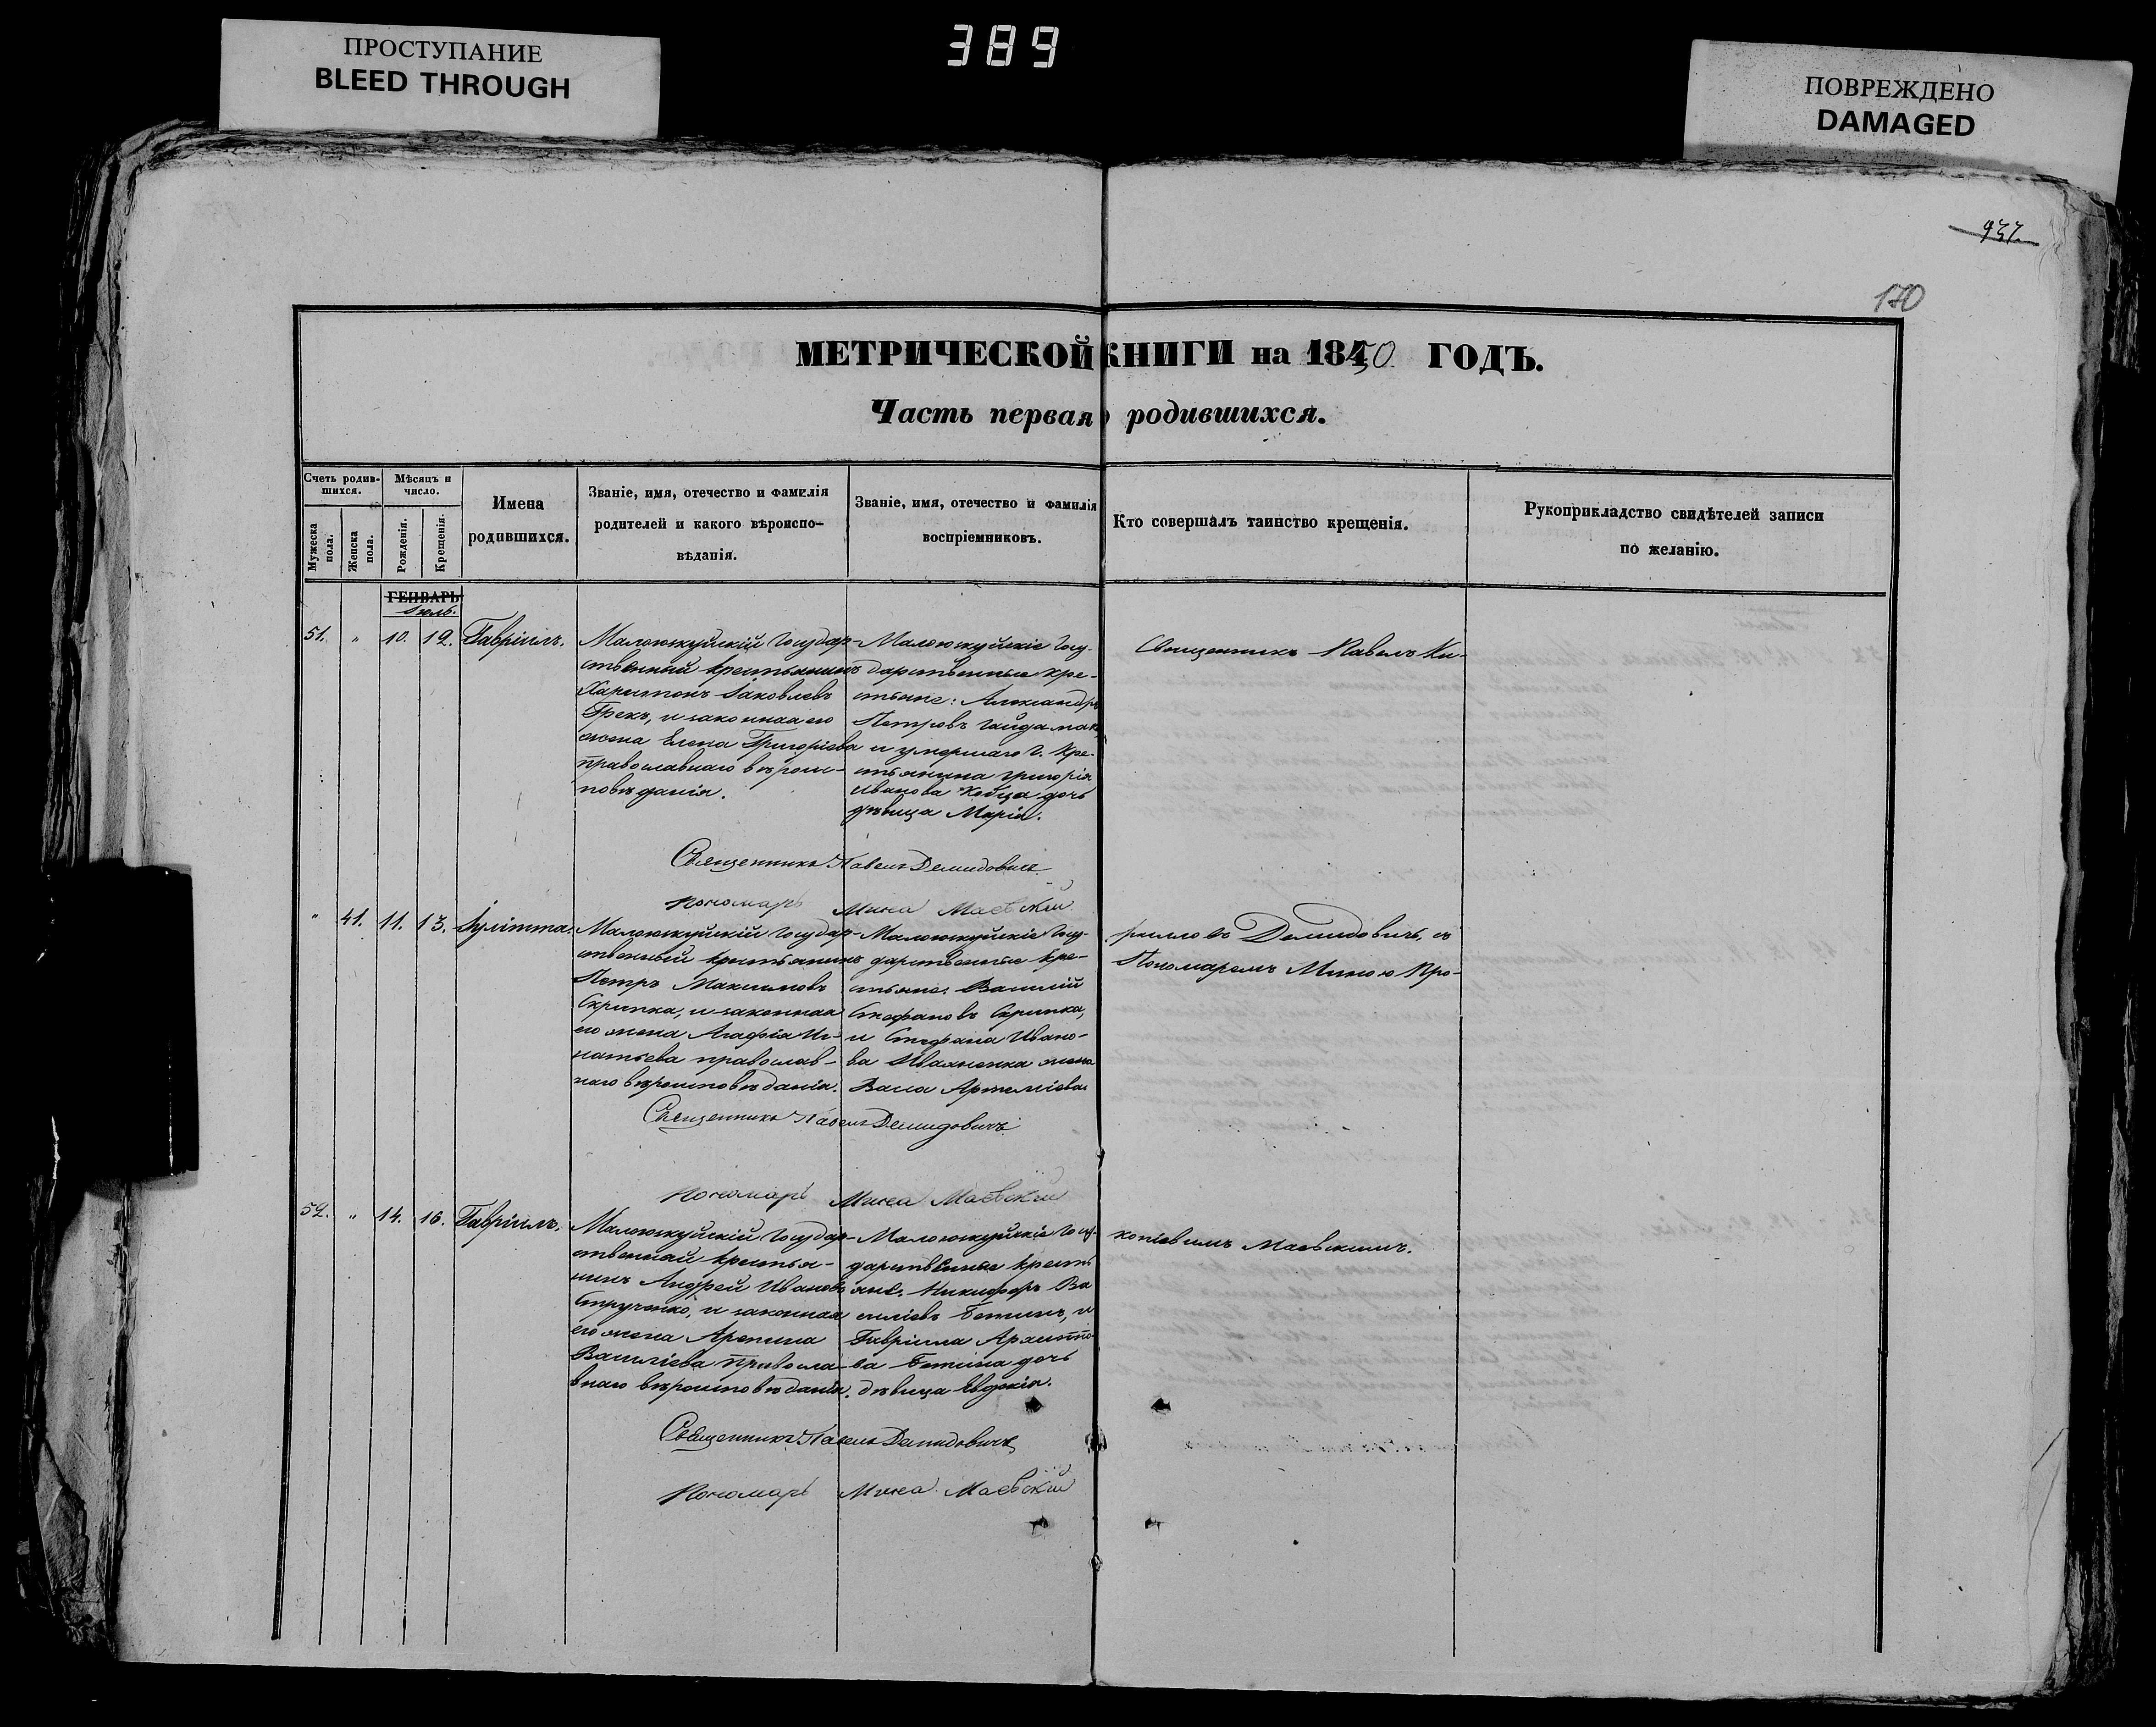 ПРОСТУПАНИЕ
BLEED THROUGH
389
ПОВРЕЖДЕНО
DAMAGED
937
170
МЕТРИЧЕСКОЙ КНИГИ на 1850 ГОДЪ.
Часть первая о родившихся.
Счетъ родив-
шихся.
Мужеска пола.
Женска пола.
Мѣсяцъ и
число.
Рожденія.
Крещенія.
Имена
родившихся.
Званіе, имя, отечество и фамилія
родителей и какого вѣроиспо-
вѣданія.
Званіе, имя, отечество и фамилія
воспріемниковъ.
Кто совершалъ таинство крещенія.
Рукоприкладство свидѣтелей записи
по желанію.
ГЕНВАРЬ
Іюль.
51. " 10. 12. Гавріилъ.
Малоюжуйскій Государ-
ственный крестьянинъ
Харитонъ Іаковлевъ
Грекъ, и законная его
жена Елена Григоріева
православнаго вѣроис-
повѣданія.
Малоюжуйскіе Госу-
дарственные кре-
стьяне: Александръ
Петровъ Гайдамака,
и умершаго Г. Кре-
стьянина Григорія
Иванова Кобца дочь
дѣвица Марія.
Священникъ Павелъ Ки-
Священникъ Павелъ Демидовичъ
Пономарь Мина Маевскій
" 41. 11. 13. Іулитта.
Малоюжуйскій Государ-
ственный крестьянинъ
Петръ Максимовъ
Скрипка, и законная
его жена Агафія Иг-
натьева православ-
наго вѣроисповѣданія.
Малоюжуйскіе Госу-
дарственные кре-
стьяне: Василій
Стефановъ Скрипка,
и Стефана Ивано-
ва Иваненка жена
Васа Артеміева
рилловъ Демидовичъ, съ
Пономаремъ Миною Про-
Священникъ Павелъ Демидовичъ
Пономарь Мина Маевскій
52. " 14. 16. Гавріилъ.
Малоюжуйскій Государ-
ственный крестья-
нинъ Андрей Ивановъ
Струченко, и законная
его жена Арепина
Василіева правосла-
внаго вѣроисповѣданія.
Малоюжуйскіе Госу-
дарственные кресть
яне: Никифоръ Ва
силіевъ Бетинъ, и
Гавріила Архипо-
ва Бетина дочь
дѣвица Евдокія.
копіевымъ Маевскимъ.
Священникъ Павелъ Демидовичъ
Пономарь Мина Маевскій